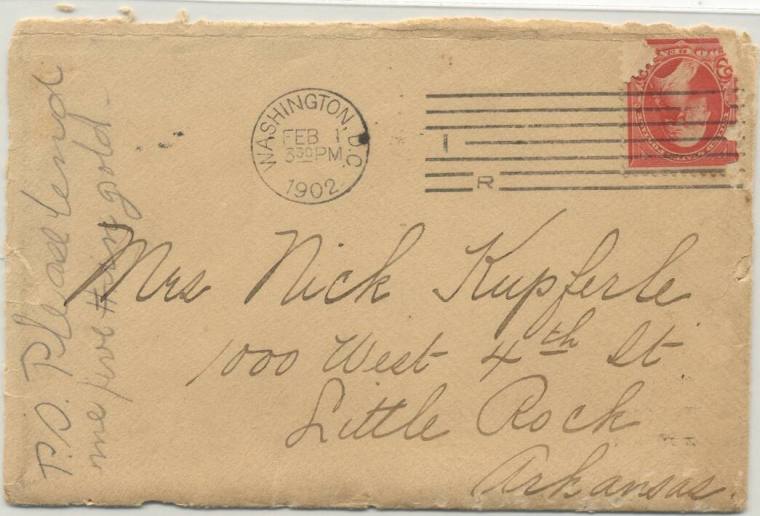 WASHINGTON, D.C.
FEB 1
3 30 PM
1902
I
R
Mrs Nick Kupferle
1000 West 4th St
Little Rock
Arkansas.
P.S. Please lend
me five gold-